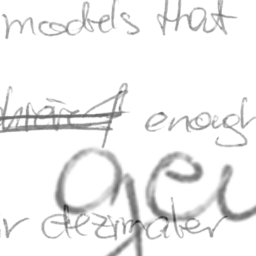 models that
enough
gen
r dezimaler